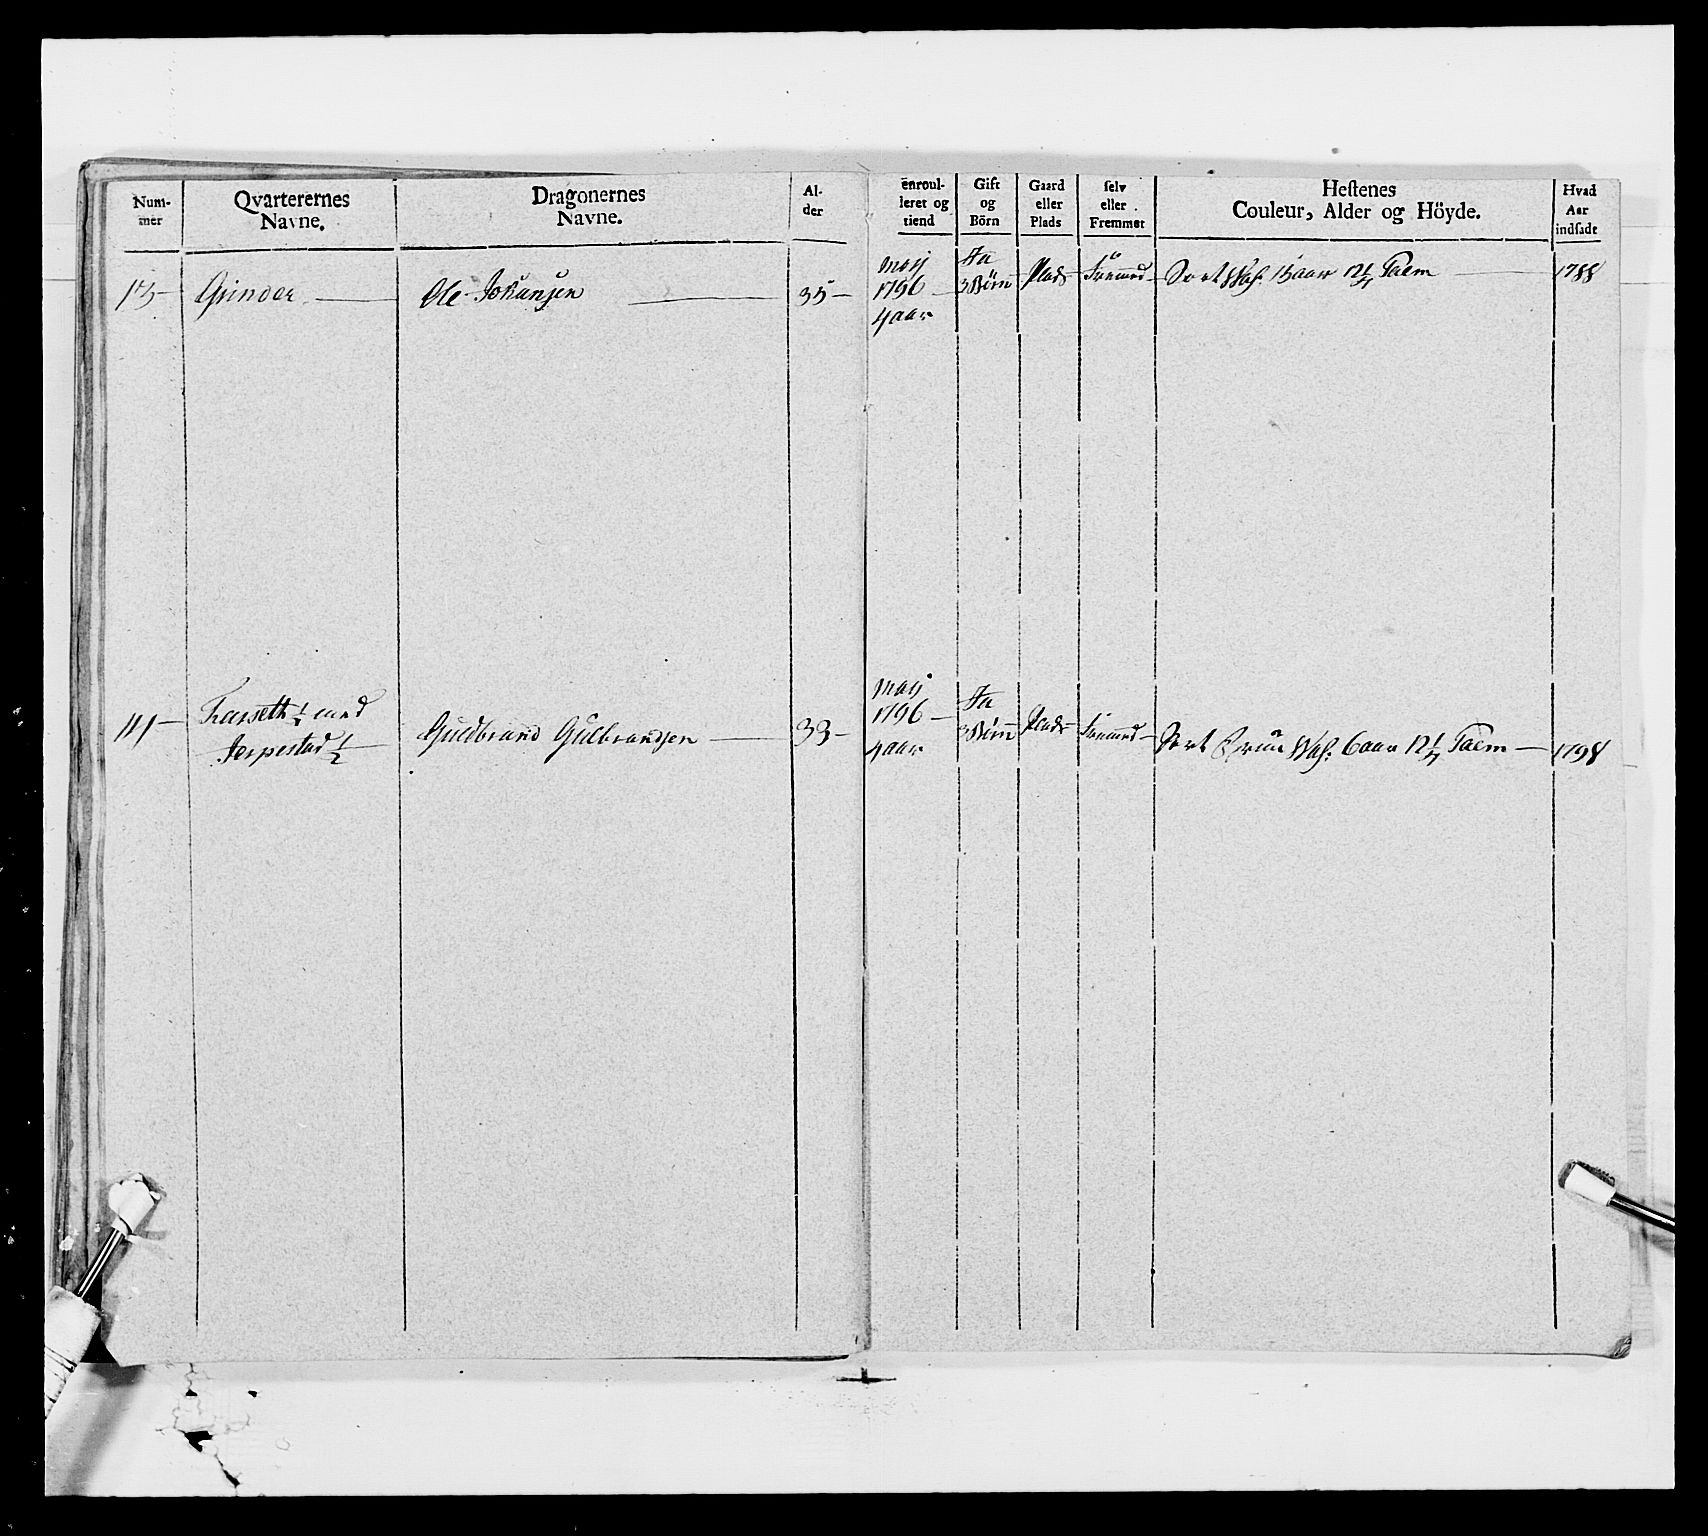 Num-
mer
Qvarterernes
Navne.
Dragonernes
Navne.
Al-
der
enroul-
leret og
tiend
Gift
og
Börn
Gaard
eller
Plads
selv
eller
Fremmet
Hestenes
Couleur, Alder og Höyde.
Hvad
Aar
indsadt
Grinder
Ole Johansen
35
Maij
1796
4 aar
Ja
3 Börn
Plads
Fremmed
Sort Wal. 15 aar 12 1/4 Palm
1788
Jerpestad 1/2
Guldbrand Gulbrandsen
33
Maij
1796
4 aar
Ja
3 Börn
Plads
Fremmed
Sort Brun Wal. 6 aar 12 1/4 Palm
1798